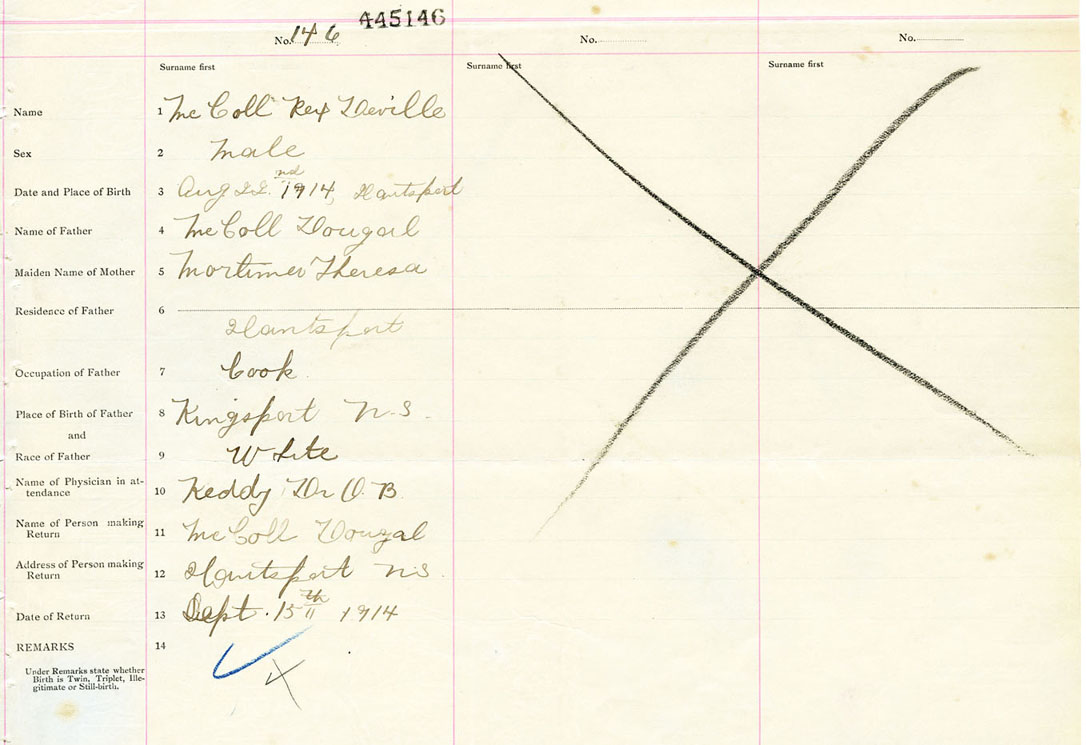 445146
No. 146
No.
No.
Surname first
Surname first
Surname first
Name 1 McColl Rex Deville
Sex 2 Male
Date and Place of Birth 3 Aug 22nd 1914, Hantsport
Name of Father 4 McColl Dougal
Maiden Name of Mother 5 Mortimer Theresa
Residence of Father 6
Hantsport
Occupation of Father 7 Cook
Place of Birth of Father 8 Kingsport N.S.
and
Race of Father 9 White
Name of Physician in at-
tendance 10 Keddy Dr O. B.
Name of Person making
Return 11 McColl Dougal
Address of Person making
Return 12 Hantsport N.S.
Date of Return 13 Sept. 15th 1914
REMARKS 14
Under Remarks state whether
Birth is Twin, Triplet, Ille-
gitimate or Still-birth.